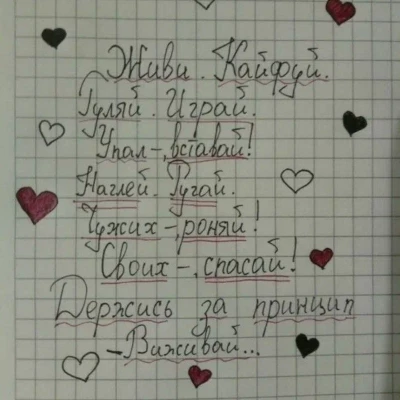 Живи. Кайфуй.
Гуляй. Играй.
Упал-, вставай!
Наглей. Ругай.
Чужих-, роняй!
Своих-, спасай!
Держись за принцип
-Виживай...